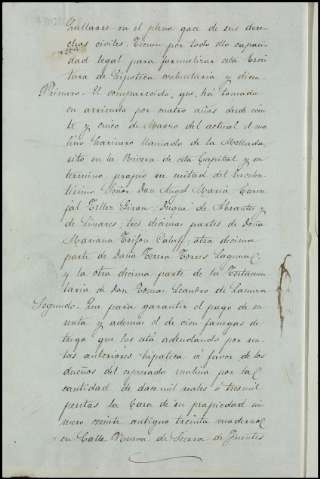 hallarse en el pleno goce de sus dere-
chos civiles. Tienen por todo ello capaci-
dad legal para formalizar esta Escri-
tura de hipoteca voluntaria y dicen
Primero = El compareciente, que, ha tomado
en arriendo por cuatro años desde vein-
te y cinco de Marzo del actual el mo-
lino harinero llamado de la Mollada,
sito en la Rivera de esta Capital y su
termino, propio en mitad del Excelen-
tisimo Señor Don Angel Maria Carva-
jal Tellez Giron Duque de Abrantes y
de Linares; tres décimas partes de Doña
Mariana Trifon; otra décima
parte de Doña Torres
y la otra décima parte de la Testamen-
taria de don Leandro de
Segundo. Que para garantir el pago de su
renta y además el de cien fanegas de
trigo que les está adeudando por ren-
tas anteriores hipoteca á favor de los
dueños del espresado molino por la
cantidad de doce mil reales ó tres mil
pesetas la Casa de su propiedad nu-
mero veinte antiguo treinta moderno
en Calle Nueva de de Fuentes